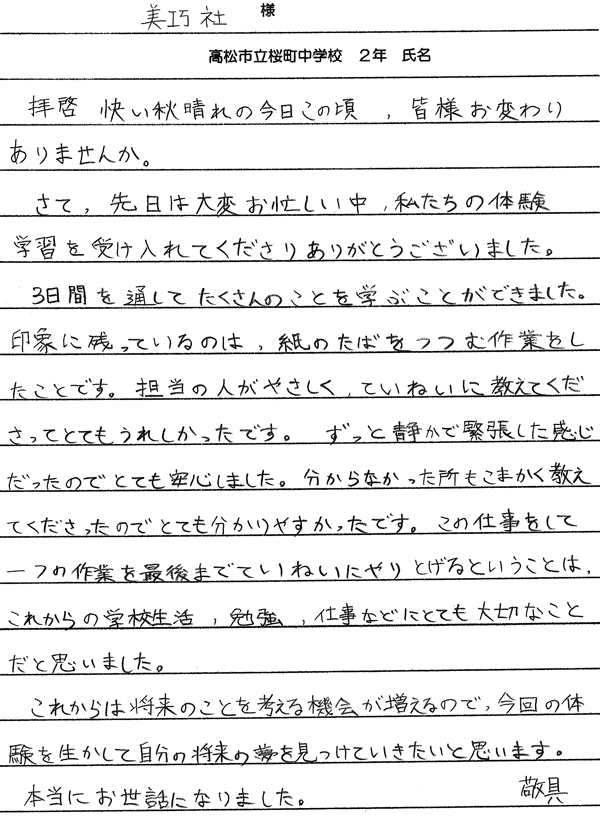 美巧社 様
高松市立桜町中学校 2年 氏名
拝啓 快い秋晴れの今日この頃、皆様お変わり
ありませんか。
さて、先日は大変お忙しい中、私たちの体験
学習を受け入れてくださりありがとうございました。
3日間を通してたくさんのことを学ぶことができました。
印象に残っているのは、紙のたばをつつむ作業をし
たことです。担当の人がやさしく、ていねいに教えてくだ
さってとてもうれしかったです。 ずっと静かで緊張した感じ
だったのでとても安心しました。分からなかった所もこまかく教え
てくださったのでとても分かりやすかったです。この仕事をして
一つの作業を最後までていねいにやりとげるということは、
これからの学校生活、勉強、仕事などにとても大切なこと
だと思いました。
これからは将来のことを考える機会が増えるので、今回の体
験を生かして自分の将来の夢を見つけていきたいと思います。
本当にお世話になりました。 敬具